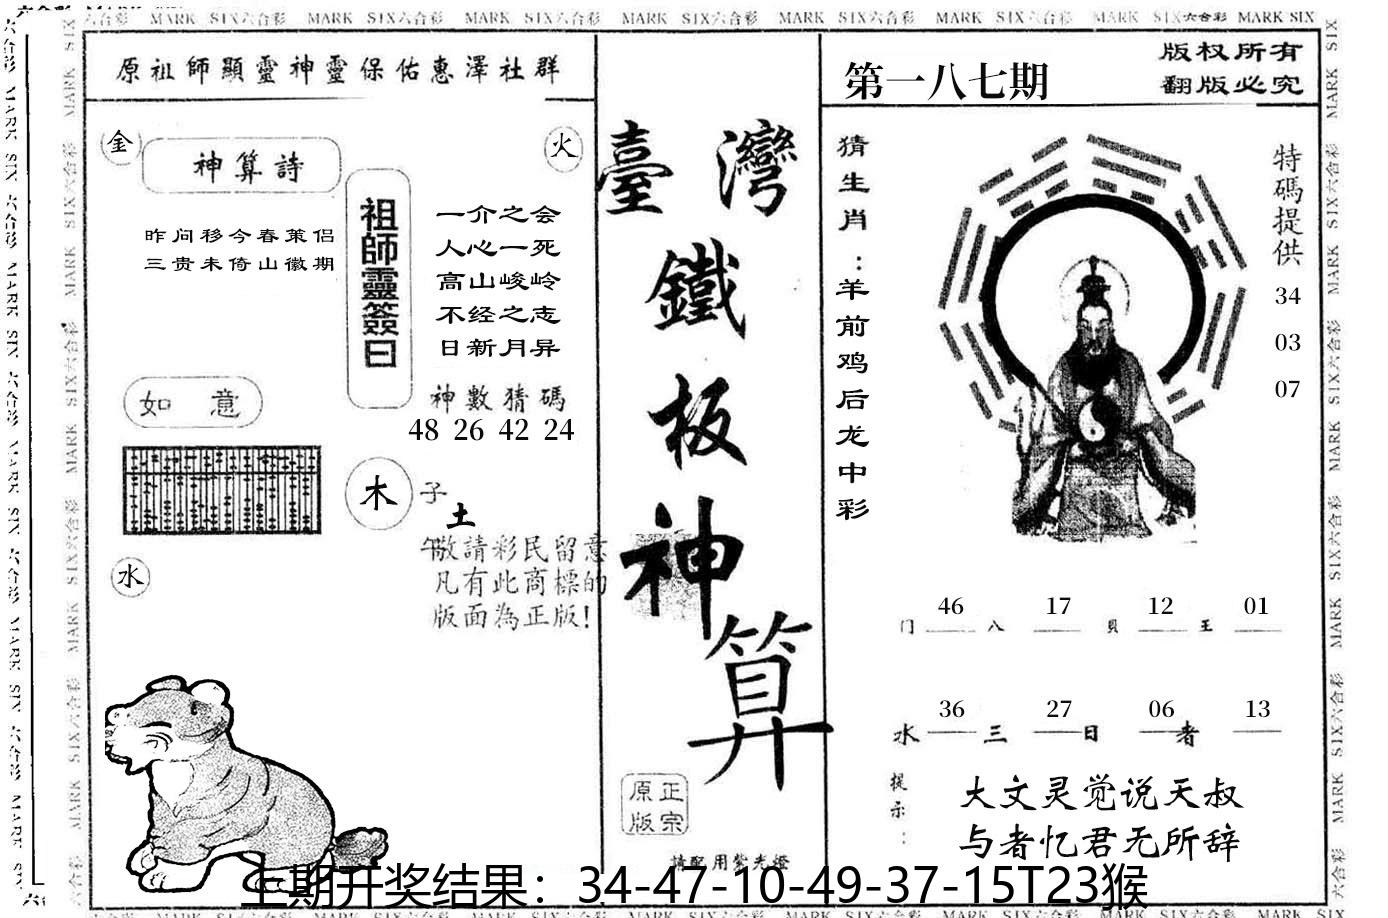 MARK SIX六合彩 MARK SIX六合彩 MARK SIX六合彩 MARK SIX六合彩 MARK SIX六合彩 MARK SIX六合彩 MARK SIX六合彩 MARK SIX
原祖師顯靈神靈保佑惠澤社群
金
神算詩
火
昨问移今春策侣
三贵未倚山徽期
祖師靈簽曰
一介之会
人心一死
高山峻岭
不经之志
日新月异
神數猜碼
48 26 42 24
如 意
木
子
土
午
敬請彩民留意
凡有此商標的
版面為正版!
水
臺灣
鐵
板
神
算
正宗
原版
請配用紫光燈
第一八七期
版权所有
翻版必究
猜生肖:羊前鸡后龙中彩
特碼提供
34
03
07
46 17 12 01
门 八 貝 王
36 27 06 13
水 三 日 者
提示:
大文灵觉说天叔
与者忆君无所辞
上期开奖结果：34-47-10-49-37-15T23猴